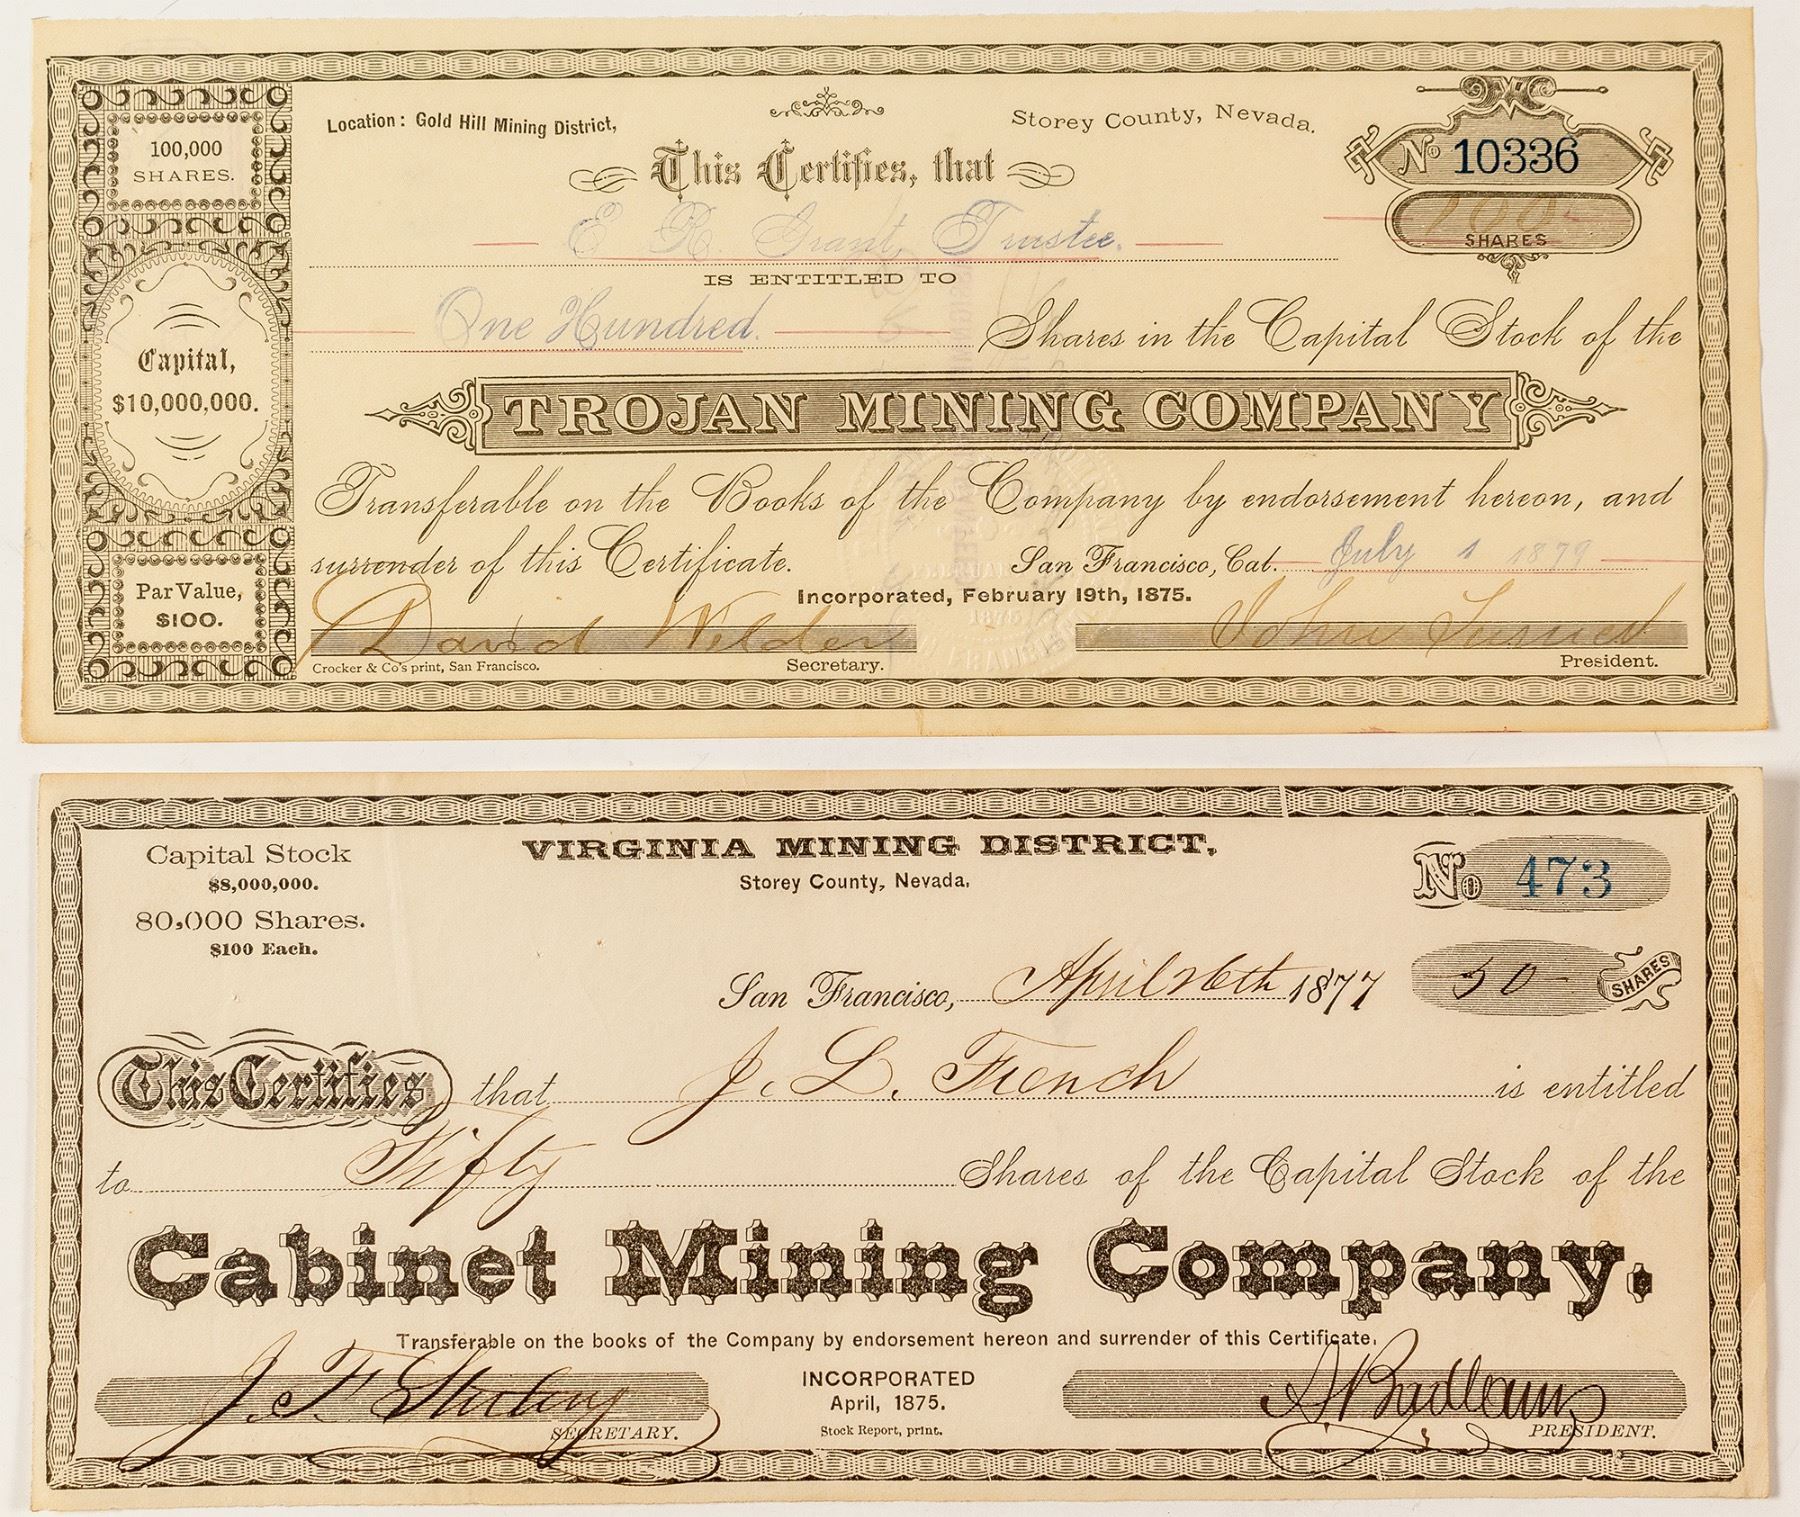 100,000
SHARES.
Capital,
$10,000,000.
Par Value,
$100.
Location: Gold Hill Mining District,
Storey County, Nevada.
No 10336
This Certifies, that
100
SHARES
E R. Grant, Trustee.
IS ENTITLED TO
One Hundred. Shares in the Capital Stock of the
TROJAN MINING COMPANY
Transferable on the Books of the Company by endorsement hereon, and
surrender of this Certificate. San Francisco, Cal. July 1 1879
Incorporated, February 19th, 1875.
David Wilder John
Crocker & Co's print, San Francisco. Secretary. President.
Capital Stock
$8,000,000.
80,000 Shares.
$100 Each.
VIRGINIA MINING DISTRICT,
Storey County, Nevada.
No 473
San Francisco, April 26th 1877
50 SHARES
This Certifies that J. L. French is entitled
to Fifty Shares of the Capital Stock of the
Cabinet Mining Company.
Transferable on the books of the Company by endorsement hereon and surrender of this Certificate.
J. F.
SECRETARY.
INCORPORATED
April, 1875.
Stock Report, print.
PRESIDENT.